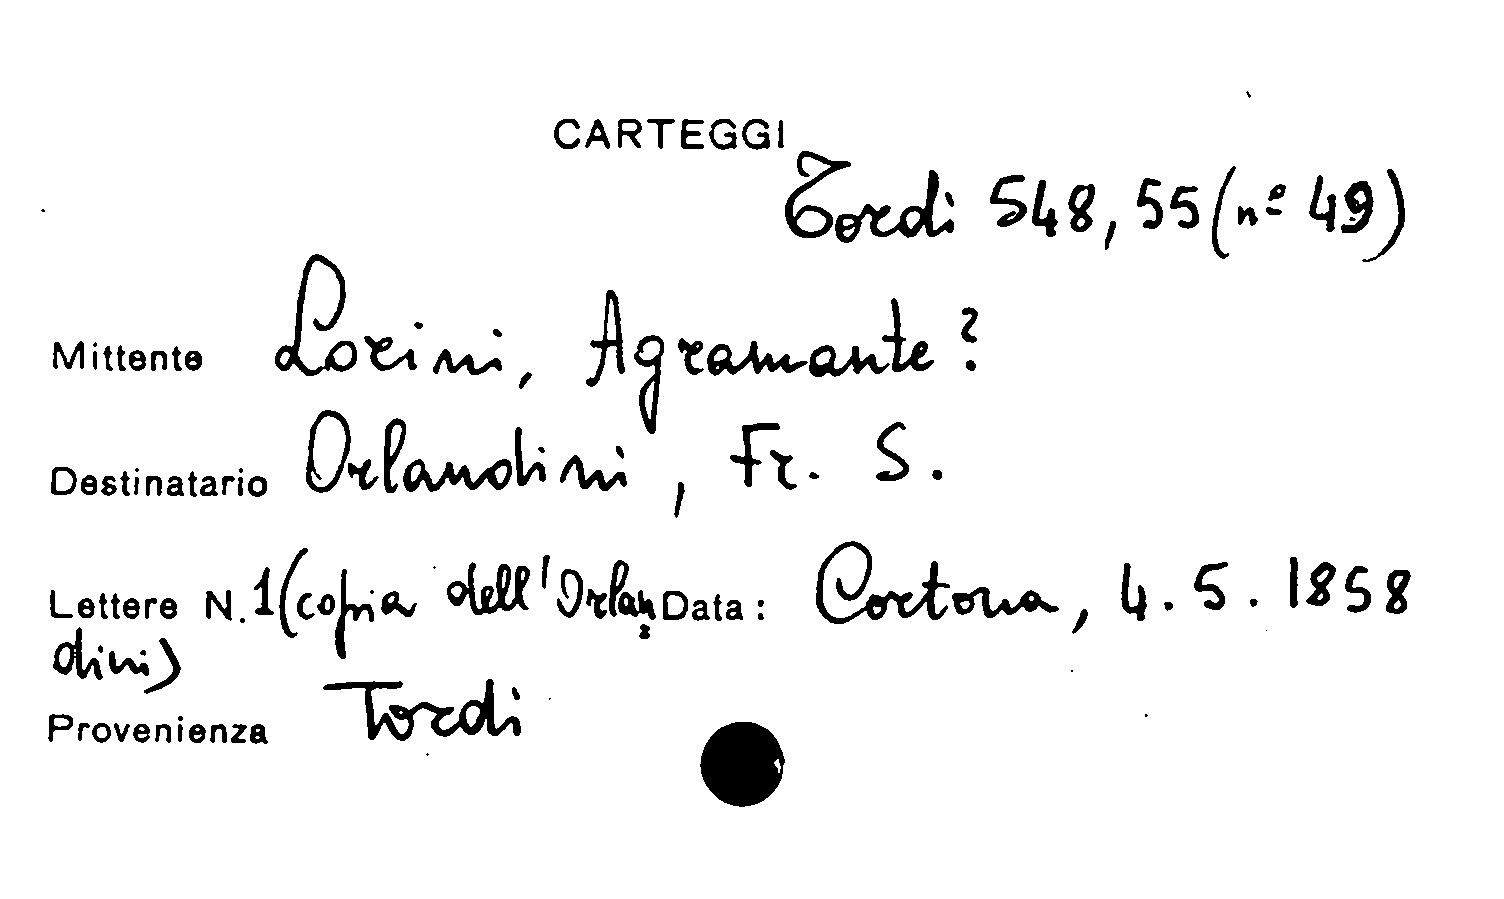 CARTEGGI
Tordi 548, 55 (nº 49)
Mittente Lorini, Agramante?
Destinatario Orlandini, Fr. S.
Lettere N. 1 (copia dell'Orlan Data: Cortona, 4.5.1858
dini)
Provenienza Tordi